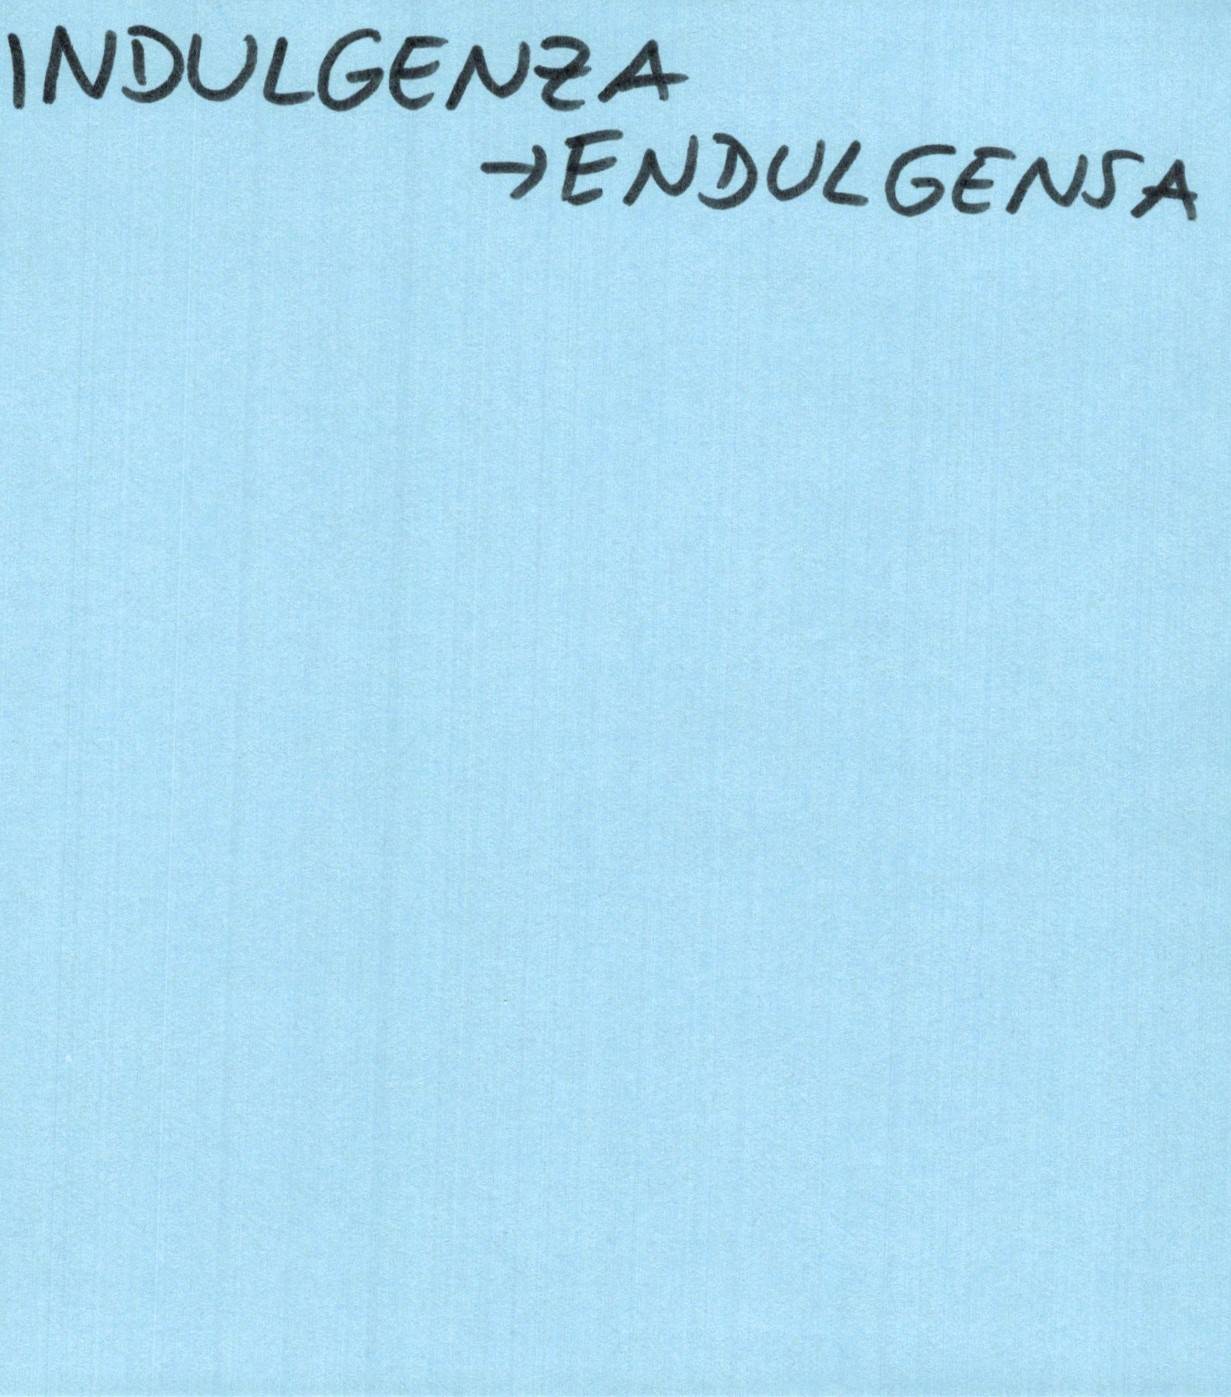 INDULGENZA
→ENDULGENSA